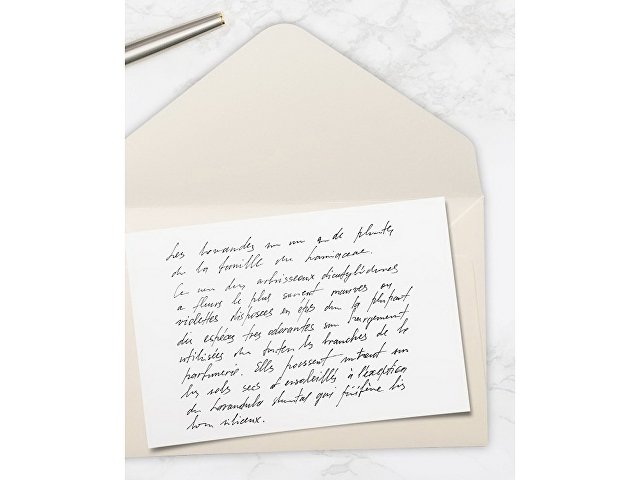 Les lavandes de plantes
de la famille des Lamiaceae.
Ce des arbrisseaux dicotylédones
a fleurs le plus souvent mauves ou
violettes disposées en épis la plupart
des espèces tres odorantes sont largement
utilisées toutes les branches de la
parfumerie. Elles poussent surtout
les sols secs ensoleillés à l'exception
Lavandula préfère les
siliceux.